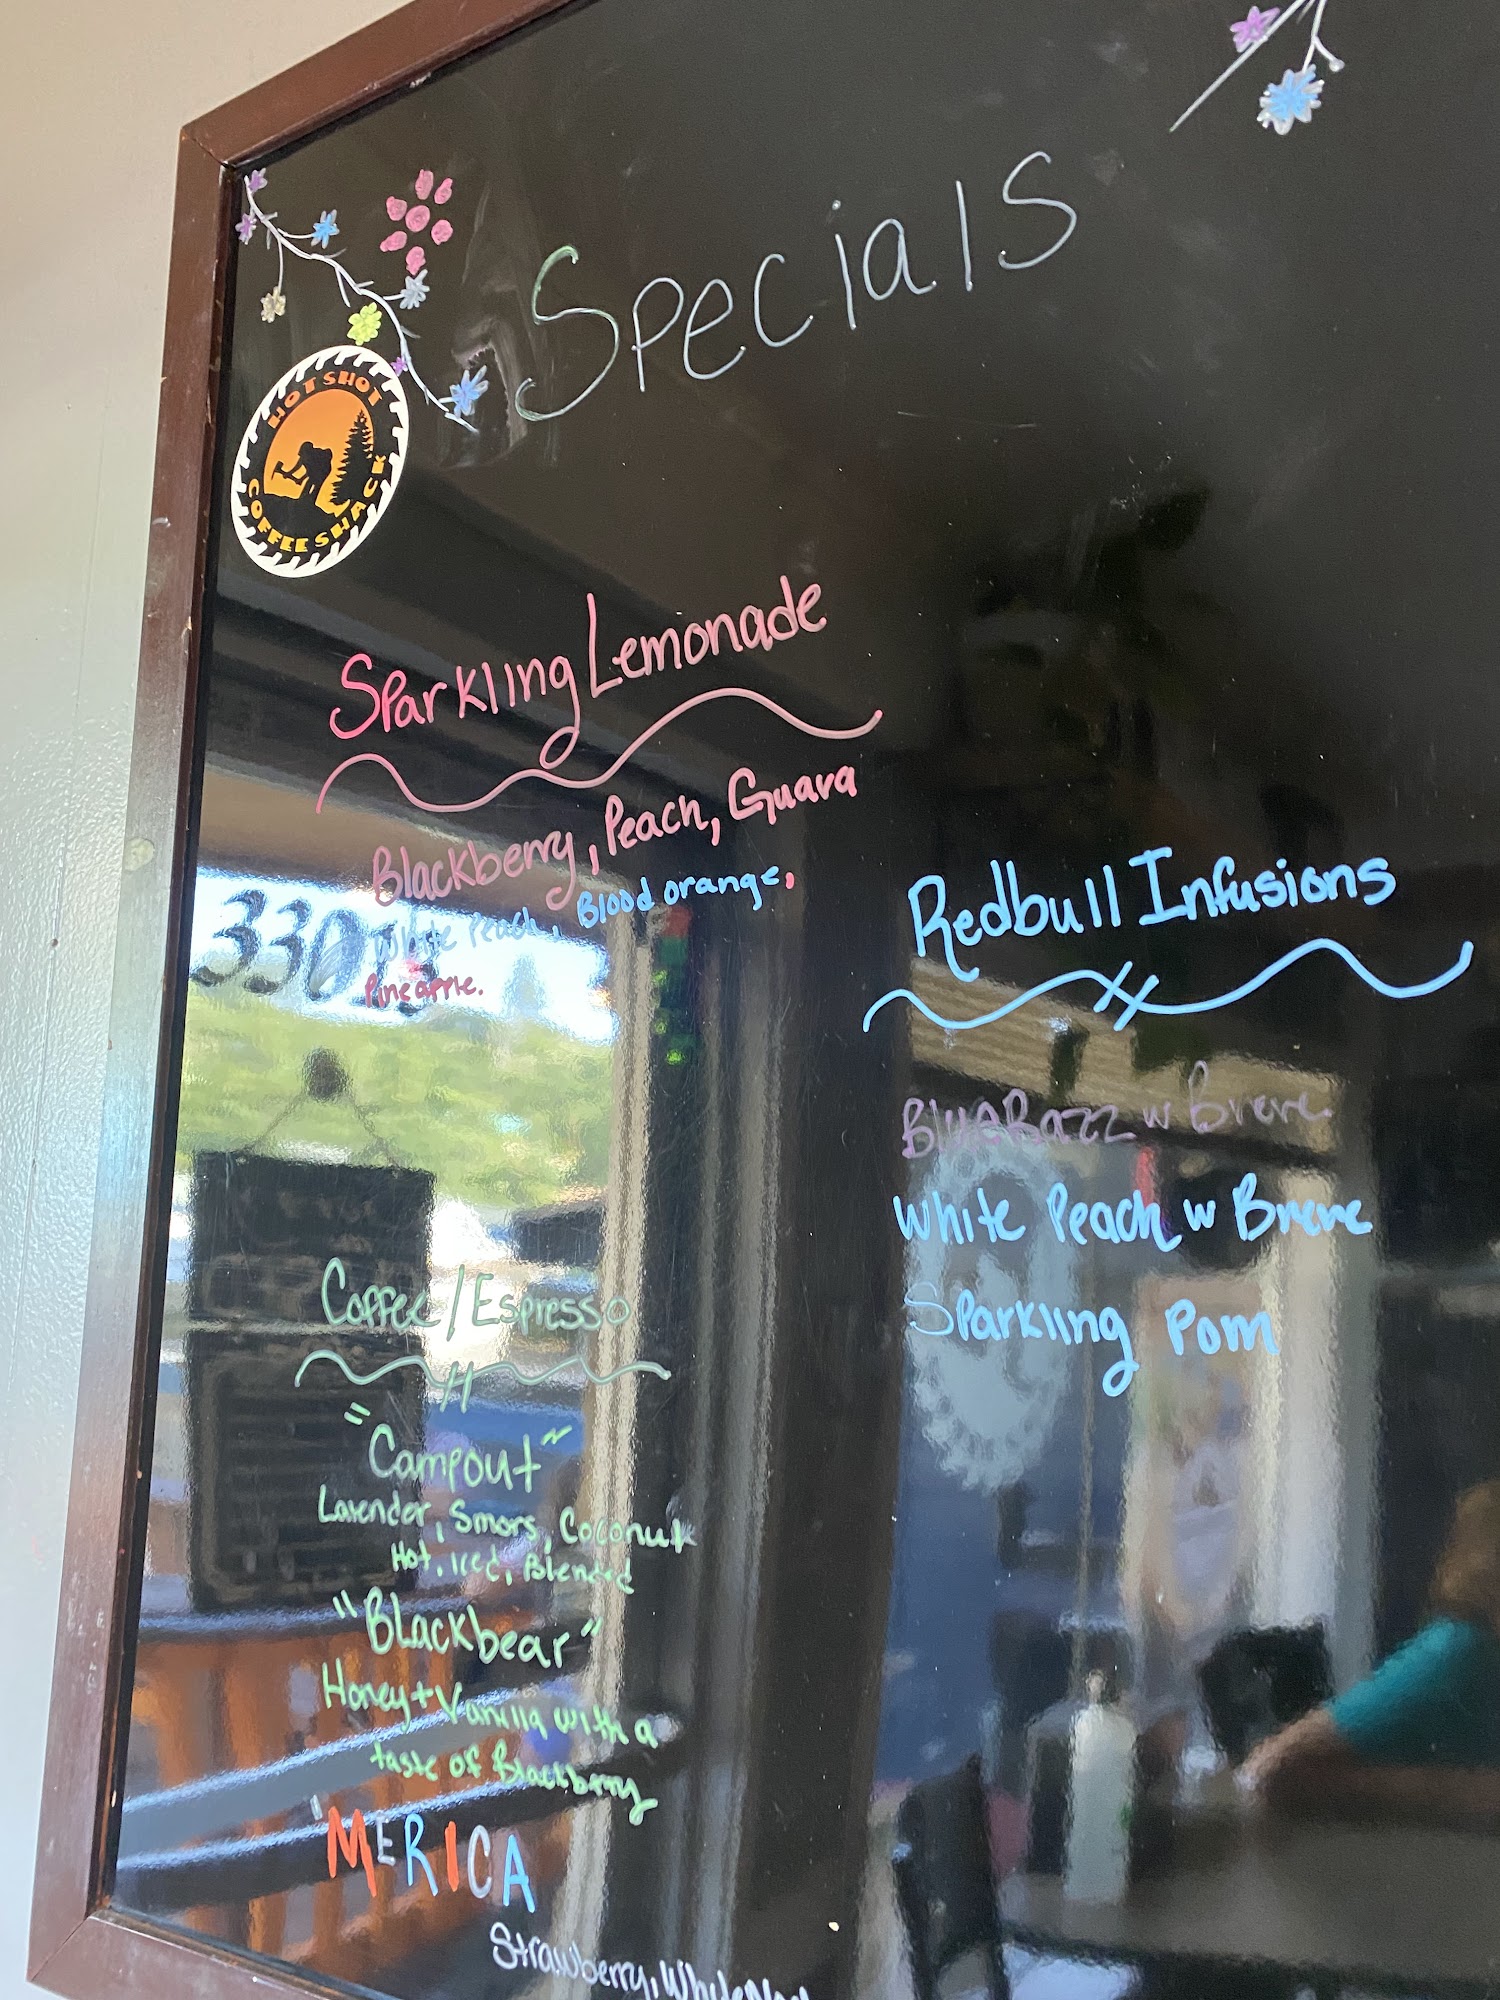 Specials
HOT SHOT
COFFEE SHACK
Sparkling Lemonade
Blackberry, Peach, Guava
White Peach, Blood orange,
Pineapple.
3301
Redbull Infusions
BlueRazz w Breve.
White Peach w Breve
Sparkling Pom
Coffee/Espresso
"Campout"
Lavender, Smors, Coconut
Hot, Iced, Blended
"Blackbear"
Honey + Vanilla with a
taste of Blackberry
'MERICA
Strawberry,